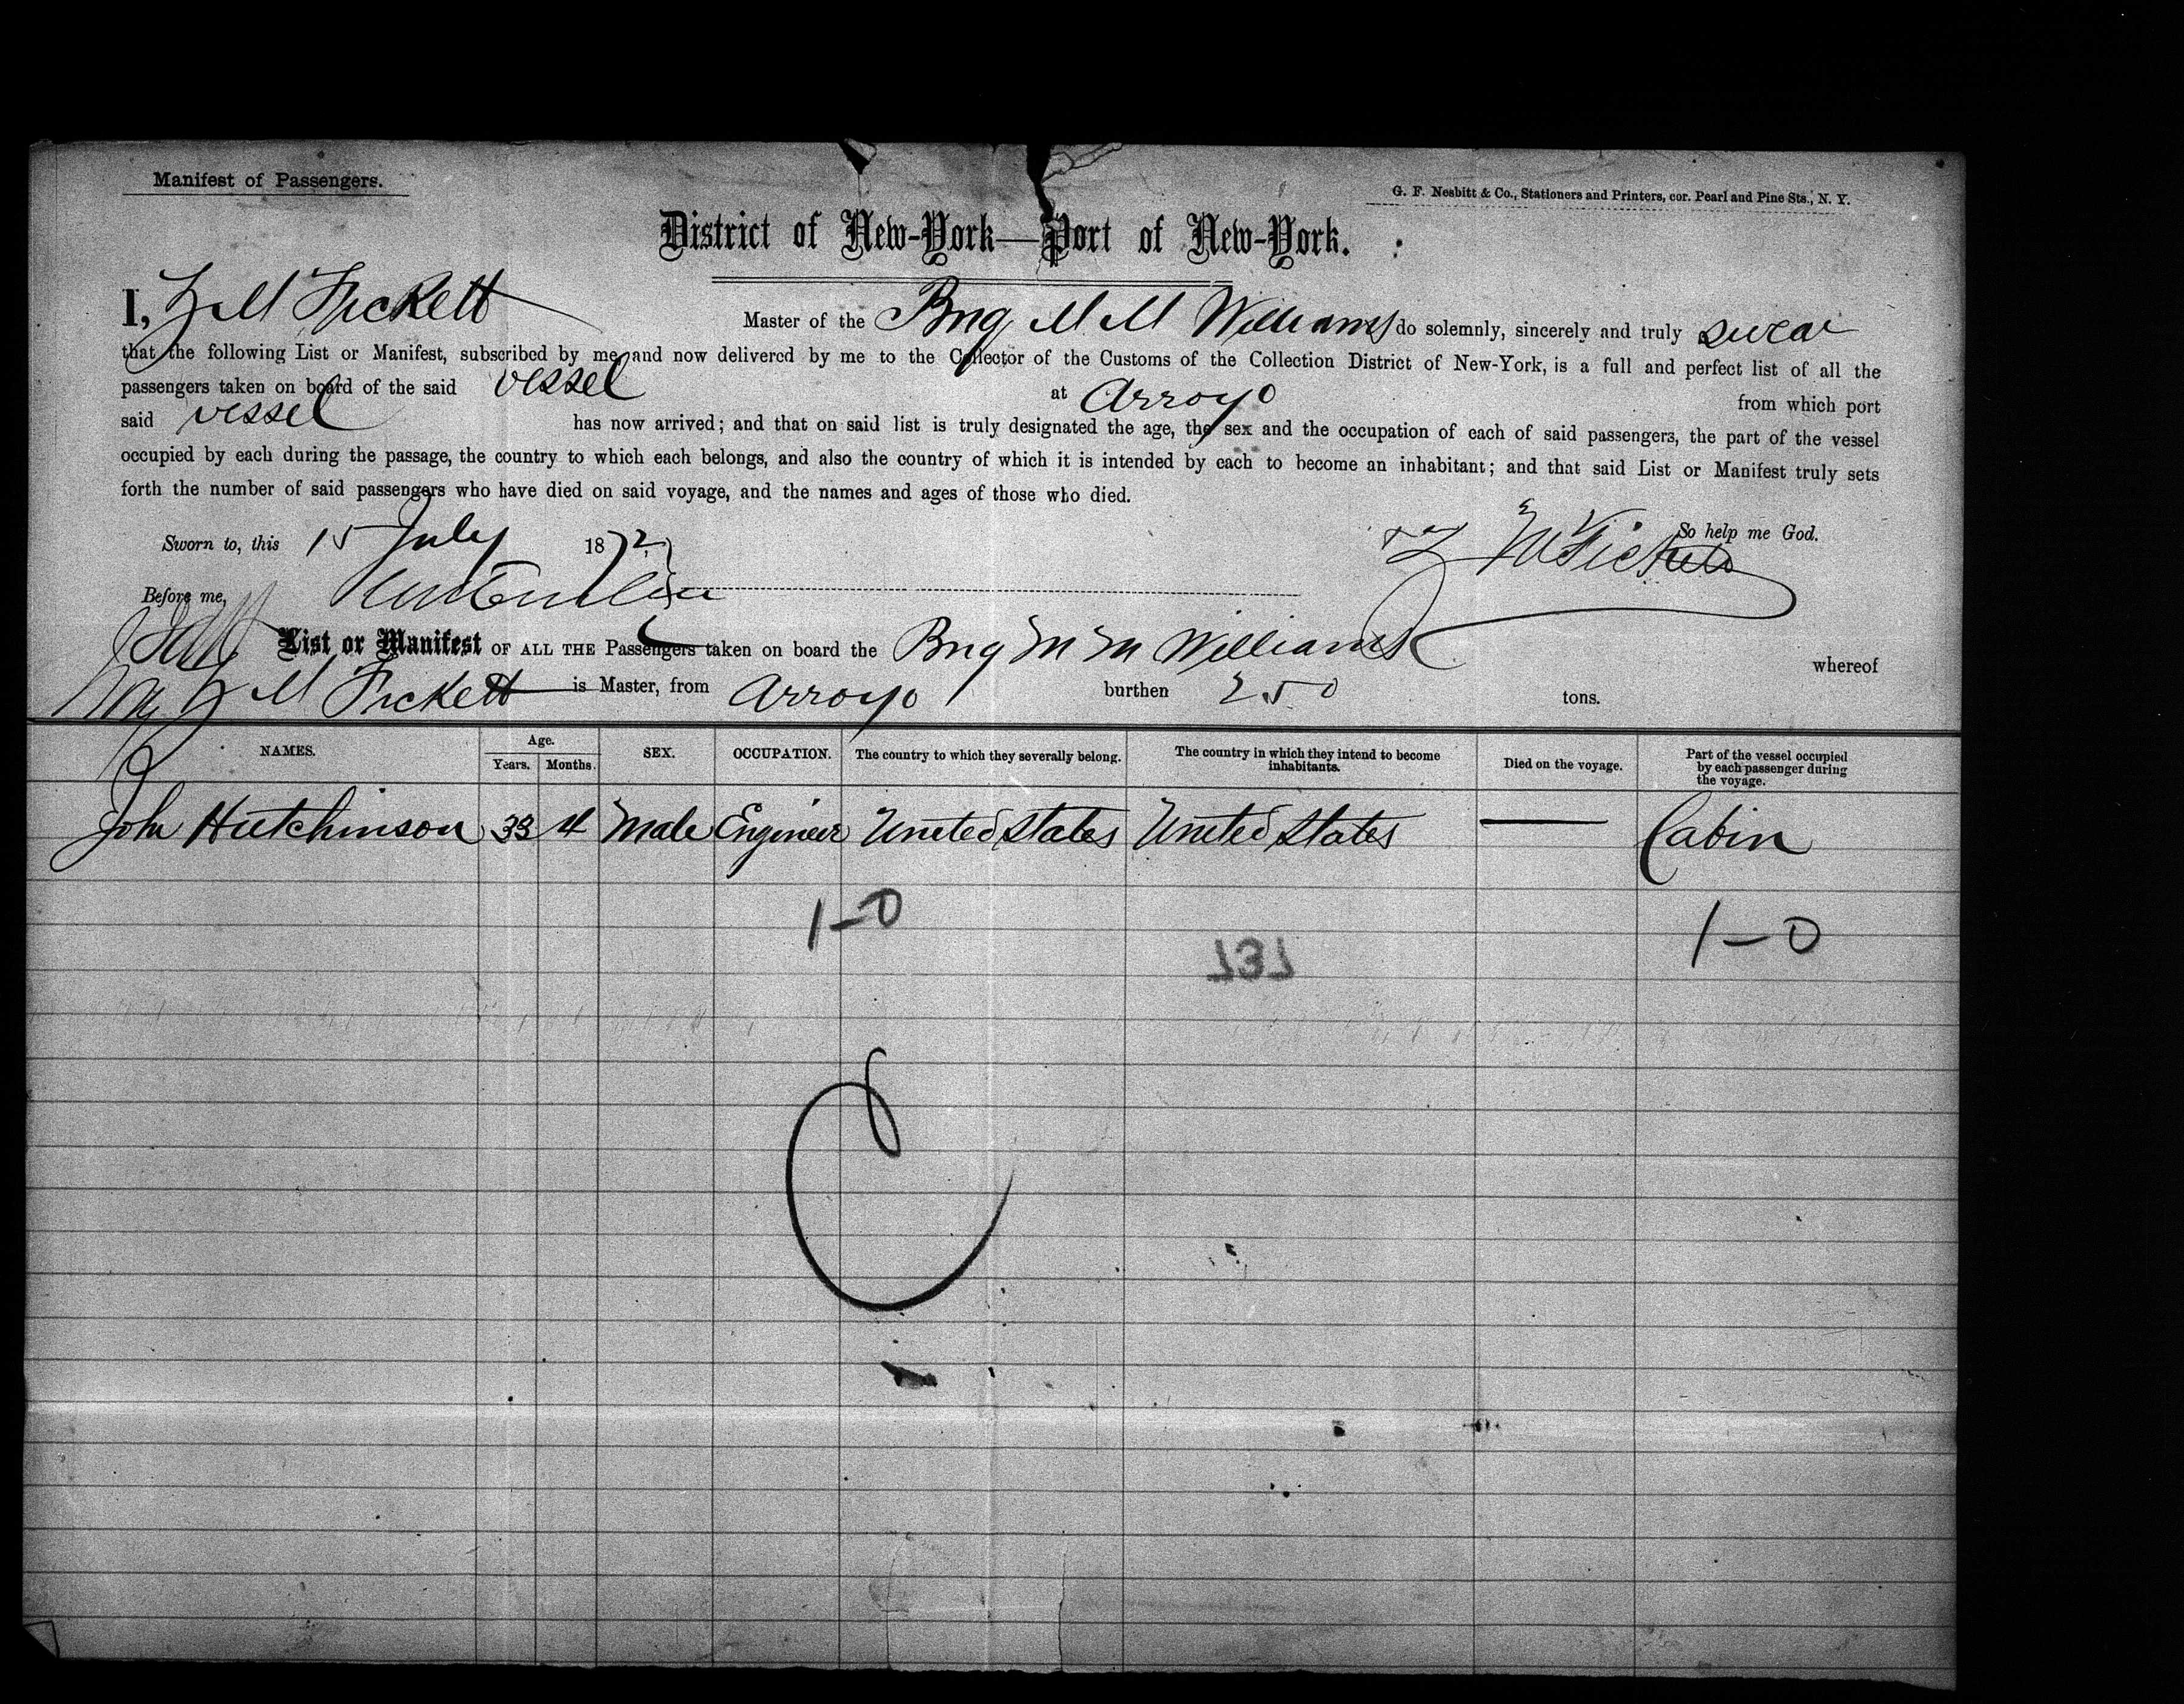 Manifest of Passengers.
G. F. Nesbitt & Co., Stationers and Printers, cor. Pearl and Pine Sts., N. Y.
District of New-York—Port of New-York.
I, Z M Fickett Master of the Brig M M Williams do solemnly, sincerely and truly swear
that the following List or Manifest, subscribed by me and now delivered by me to the Collector of the Customs of the Collection District of New-York, is a full and perfect list of all the
passengers taken on board of the said vessel at Arroyo from which port
said vessel has now arrived; and that on said list is truly designated the age, the sex and the occupation of each of said passengers, the part of the vessel
occupied by each during the passage, the country to which each belongs, and also the country of which it is intended by each to become an inhabitant; and that said List or Manifest truly sets
forth the number of said passengers who have died on said voyage, and the names and ages of those who died.
Sworn to, this 15 July 1872 So help me God.
Z M Fickett
Before me,
List or Manifest OF ALL THE Passengers taken on board the Brig M M Williams whereof
Z M Fickett is Master, from Arroyo burthen 250 tons.
NAMES. Age. Years. Months. SEX. OCCUPATION. The country to which they severally belong. The country in which they intend to become inhabitants. Died on the voyage. Part of the vessel occupied by each passenger during the voyage.
John Hutchinson 33 4 Male Engineer United States United States — Cabin
1-0 1-0
737